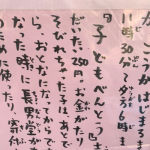 がっこうがはじまるま
11時30分 夕方6時ま
「子どもべんとう」
だいたい250円。お金がたり
そびれちゃた子は、あとで
ら、おとなになってからで
なった時に長男堂が
のために使ったり、寄付